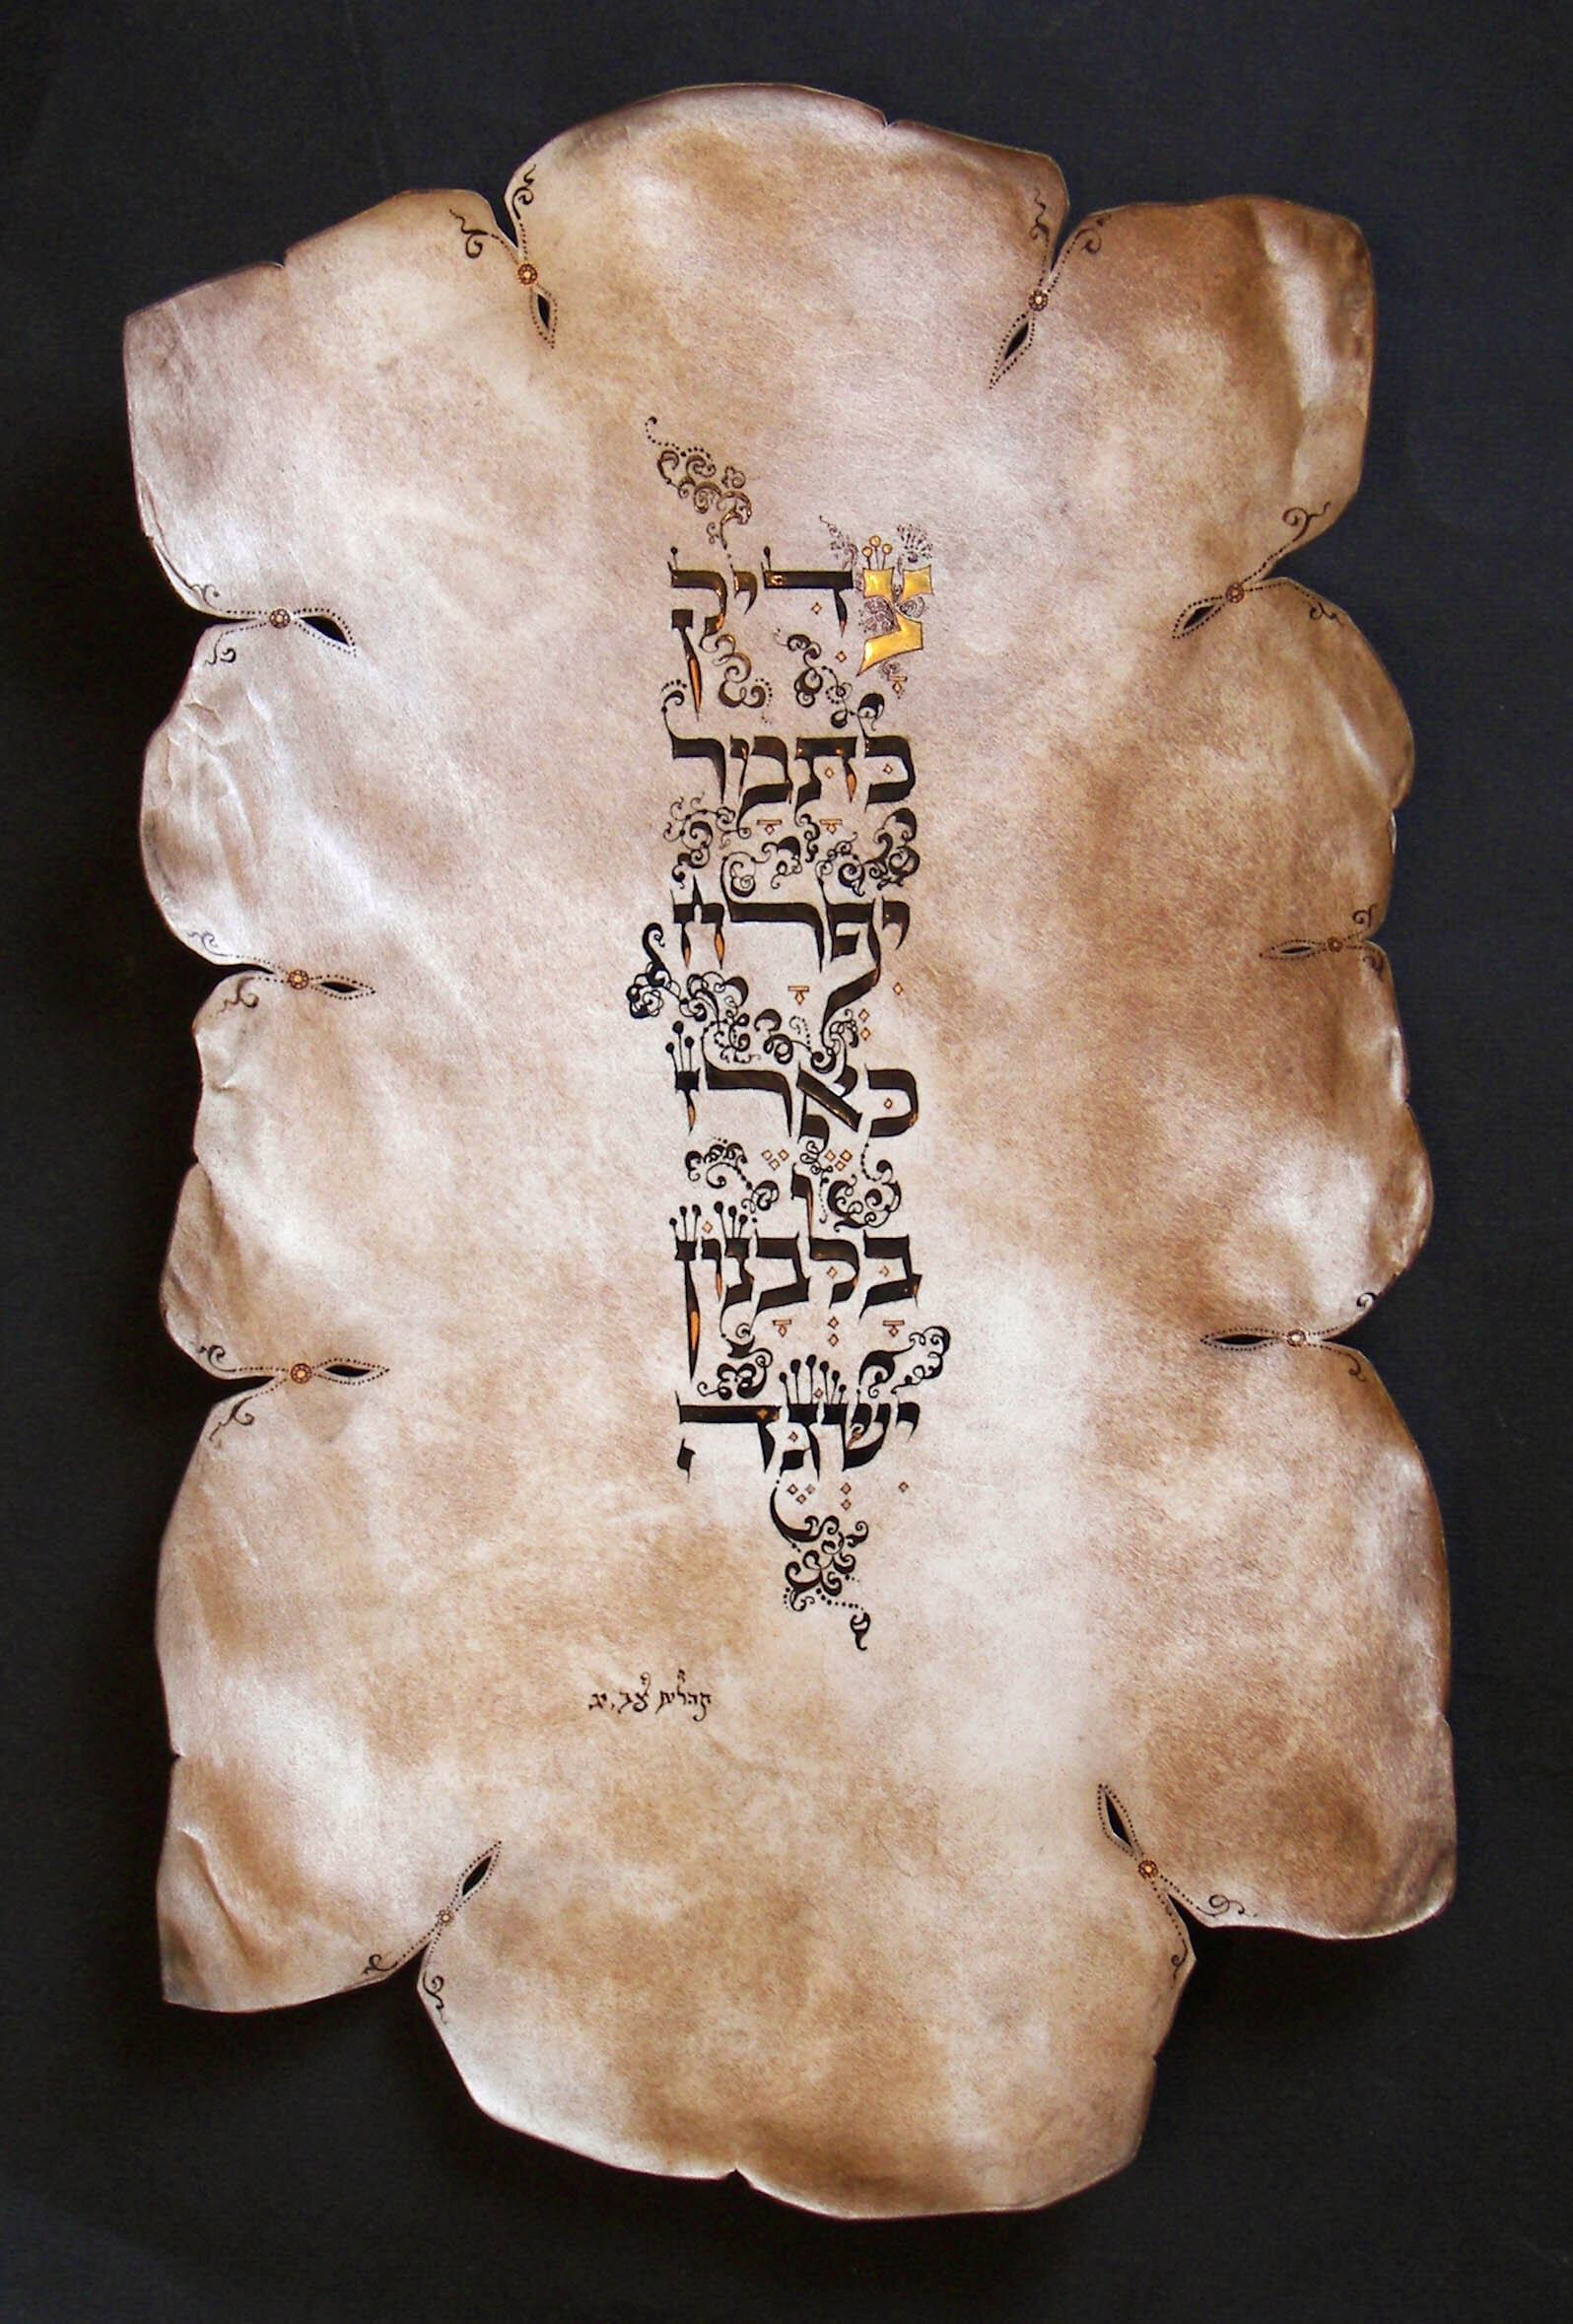 צַדִּיק
כַּתָּמָר
יִפְרָח
כְּאֶרֶז
בַּלְּבָנוֹן
יִשְׂגֶּה
תהלים צב, יג